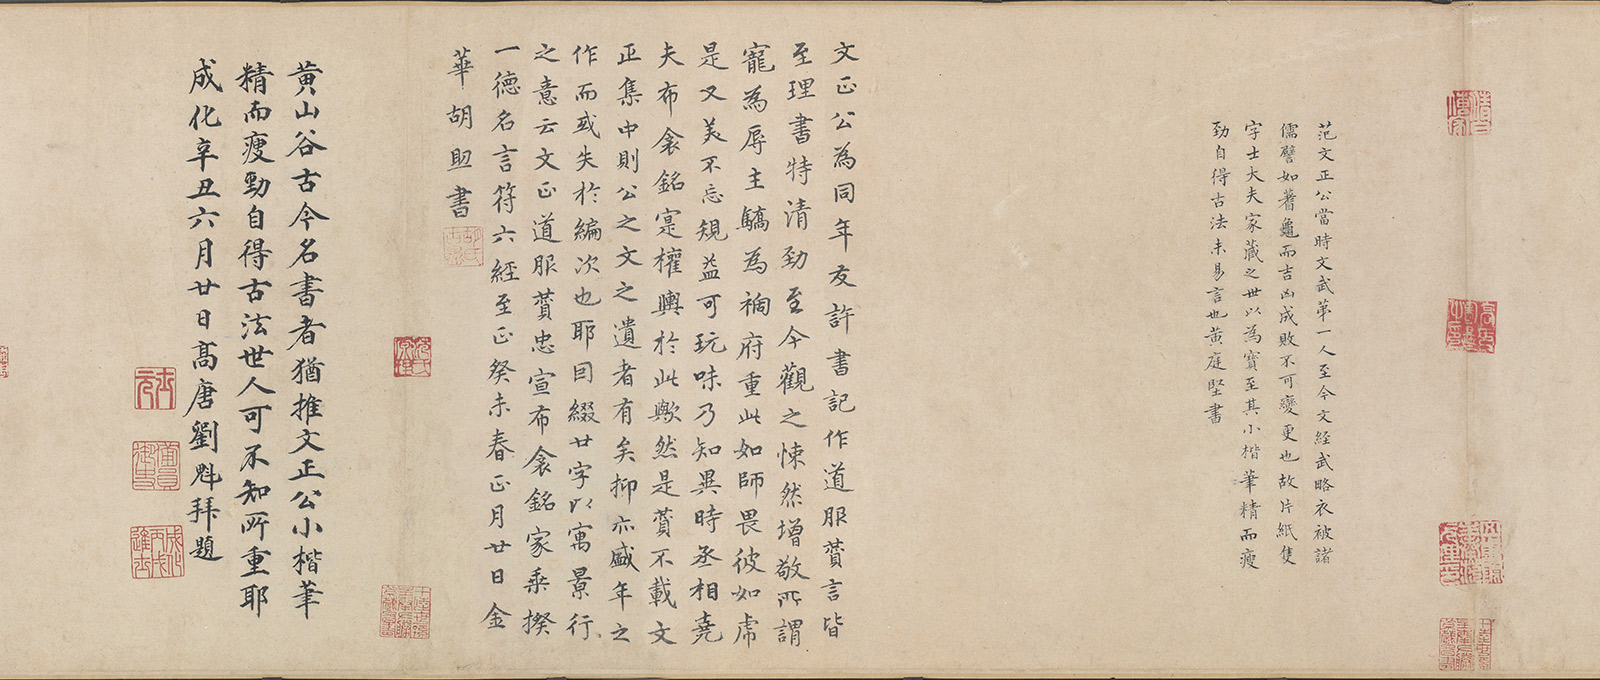 范文正公當時文武第一人至今文經武略衣被諸
儒譬如蓍龜而吉凶成敗不可變更也故片紙隻
字士大夫家藏之世以為寶至其小楷筆精而瘦
勁自得古法未易言也黃庭堅書
文正公為同年友許書記作道服贊言皆
至理書特清勁至今觀之悚然增敬所謂
寵為辱主驕為禍府重此如師畏彼如虎
是又美不忘規益可玩味乃知異時丞相堯
夫布衾銘寔權輿於此歟然是贊不載文
正集中則公之文之遺者有矣抑亦盛年之
作而或失於編次也耶因綴廿字以寓景行
之意云文正道服贊忠宣布衾銘家乘揆
一德名言符六經至正癸未春正月廿日金
華胡助書
黃山谷古今名書者猶推文正公小楷筆
精而瘦勁自得古法世人可不知所重耶
成化辛丑六月廿日高唐劉魁拜題